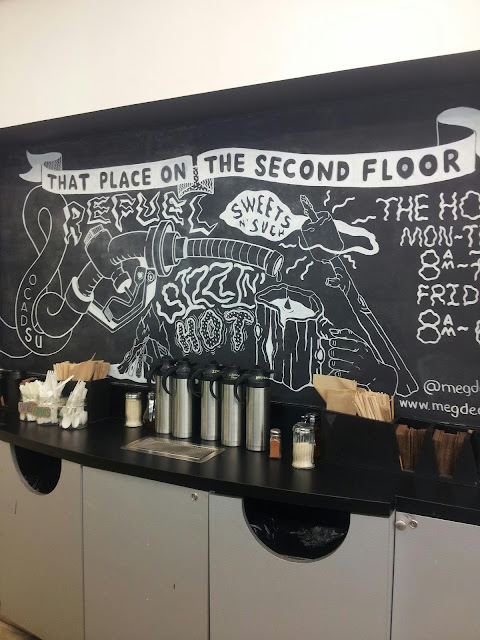 THAT PLACE ON THE SECOND FLOOR
REFUEL
SWEETS
N' SUCH
SIZZLIN'
HOT
OCADSU
THE HO
MON-T
8AM-
FRID
8AM-
@megde
www.megdec